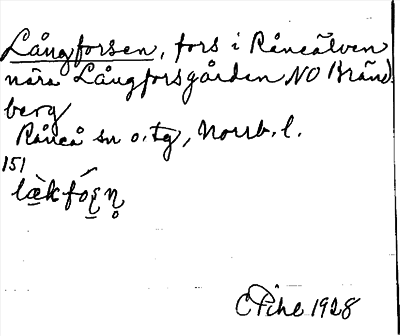 Långforsen, fors i Råneälven
nära Långforsgården, NO Bränd
berg
Råneå sn o. tg, Norrb. l.
151
C Pihl 1928